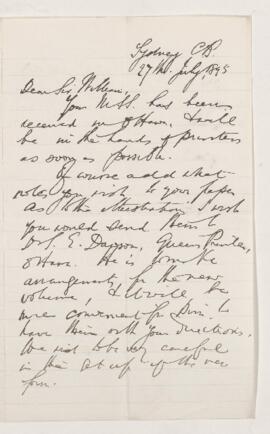 Sydney C.B.
27th July 1895
Dear Sir William,
Your MSS. has been
received in Ottawa, & will
be in the hands of printers
as soon as possible.
Of course add what
notes you wish to your paper
As to the illustrations I wish
you would send them to
Dr. S. E. Dawson, Queens Printer,
Ottawa. He is to make
arrangements for the new
volume, & it will be
more convenient for him to
have them with your directions.
We wish to be very careful
in the get up of the new
form.